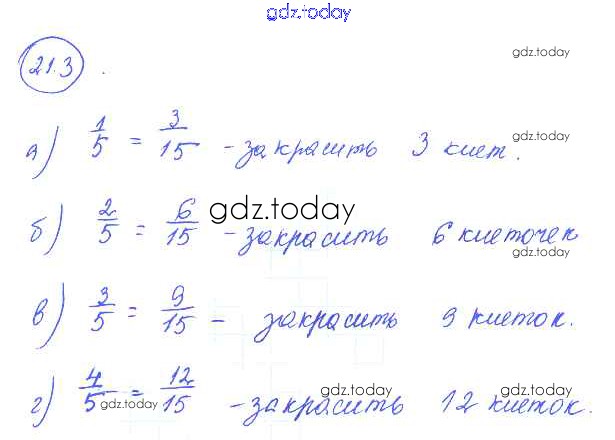 gdz.today
21.3 .
gdz.today
а) 1/5 = 3/15 - закрасить 3 клет.
gdz.today
б) 2/5 = 6/15 - закрасить 6 клеточек
gdz.today
gdz.today
в) 3/5 = 9/15 - закрасить 9 клеток.
г) 4/5 = 12/15 - закрасить 12 клеток.
gdz.today
gdz.today
gdz.today